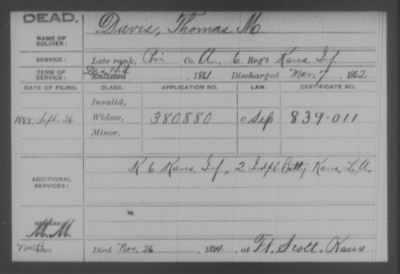 DEAD.
NAME OF SOLDIER: Davis, Thomas M
SERVICE: Late rank, Pri Co. A, 6 Reg't Kans If
TERM OF SERVICE: Enlisted 1861 Discharged Mar. 7, 1862
DATE OF FILING. CLASS. APPLICATION NO. LAW. CERTIFICATE NO.
Invalid,
1888, Sept. 26 Widow, 380880 Sep 839.011
Minor,
ADDITIONAL SERVICES: K 6 Kans If, 2 Indpt Batty Kans L.A.
M.M.
Died Nov. 26, at Ft. Scott. Kans